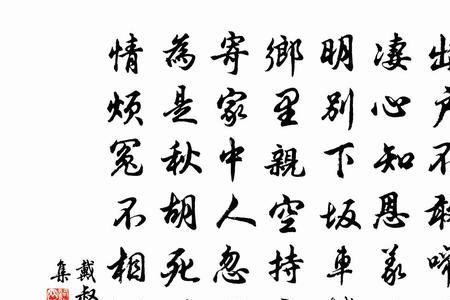 出户不敢啼
凄心知恩義
明别下坂車
鄉里親空持
寄家中人忽
為是秋胡死
情煩冤不相
戴叔
集